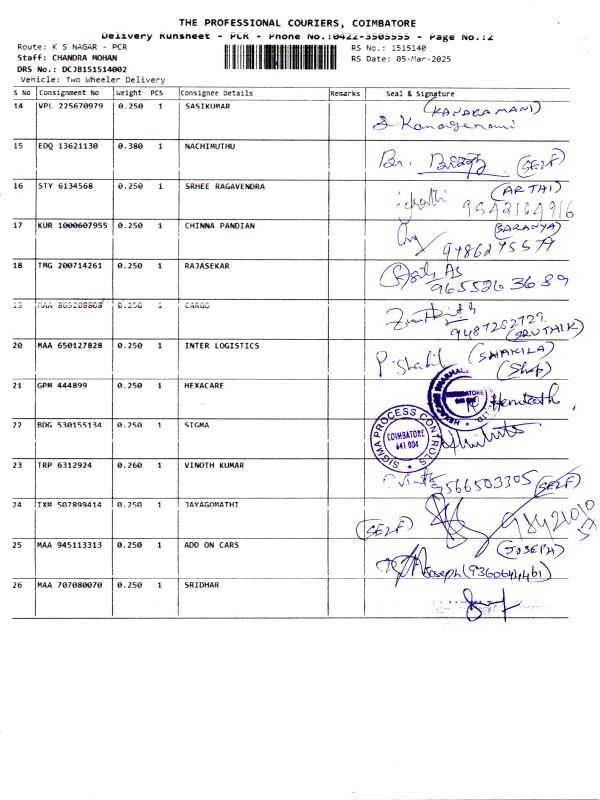 THE PROFESSIONAL COURIERS, COIMBATORE
Delivery Runsheet - PCR - Phone No.:0422-3505555 - Page No.:2
Route: K S NAGAR - PCR RS No.: 1515140
Staff: CHANDRA MOHAN RS Date: 05-Mar-2025
DRS No.: DCJB151514002
Vehicle: Two Wheeler Delivery
S No Consignment No Weight PCS Consignee Details Remarks Seal & Signature
14 VPL 225670979 0.250 1 SASIKUMAR (KANAKAMANI)
15 EDQ 13621130 0.380 1 NACHIMUTHU (SELF)
16 STY 6134568 0.250 1 SRHEE RAGAVENDRA (ARTHI)
17 KUR 1000607955 0.250 1 CHINNA PANDIAN (SARANYA)
9486275577
18 TMG 200714261 0.250 1 RAJASEKAR
9655263689
19 MAA 0.250 1 CARGO
9487282729
(SRUTHIK)
20 MAA 650127828 0.250 1 INTER LOGISTICS (SHAKILA)
(Shop)
21 GPM 444899 0.250 1 HEXACARE COIMBATORE
22 BDG 530155134 0.250 1 SIGMA SIGMA PROCESS CONTROLS COIMBATORE 641 004
23 TRP 6312924 0.260 1 VINOTH KUMAR 9566503305 (SELF)
24 IXM 507899414 0.250 1 JAYAGOMATHI (SELF)
25 MAA 945113313 0.250 1 ADD ON CARS (JOSEPH)
Joseph (9360644461)
26 MAA 707080070 0.250 1 SRIDHAR